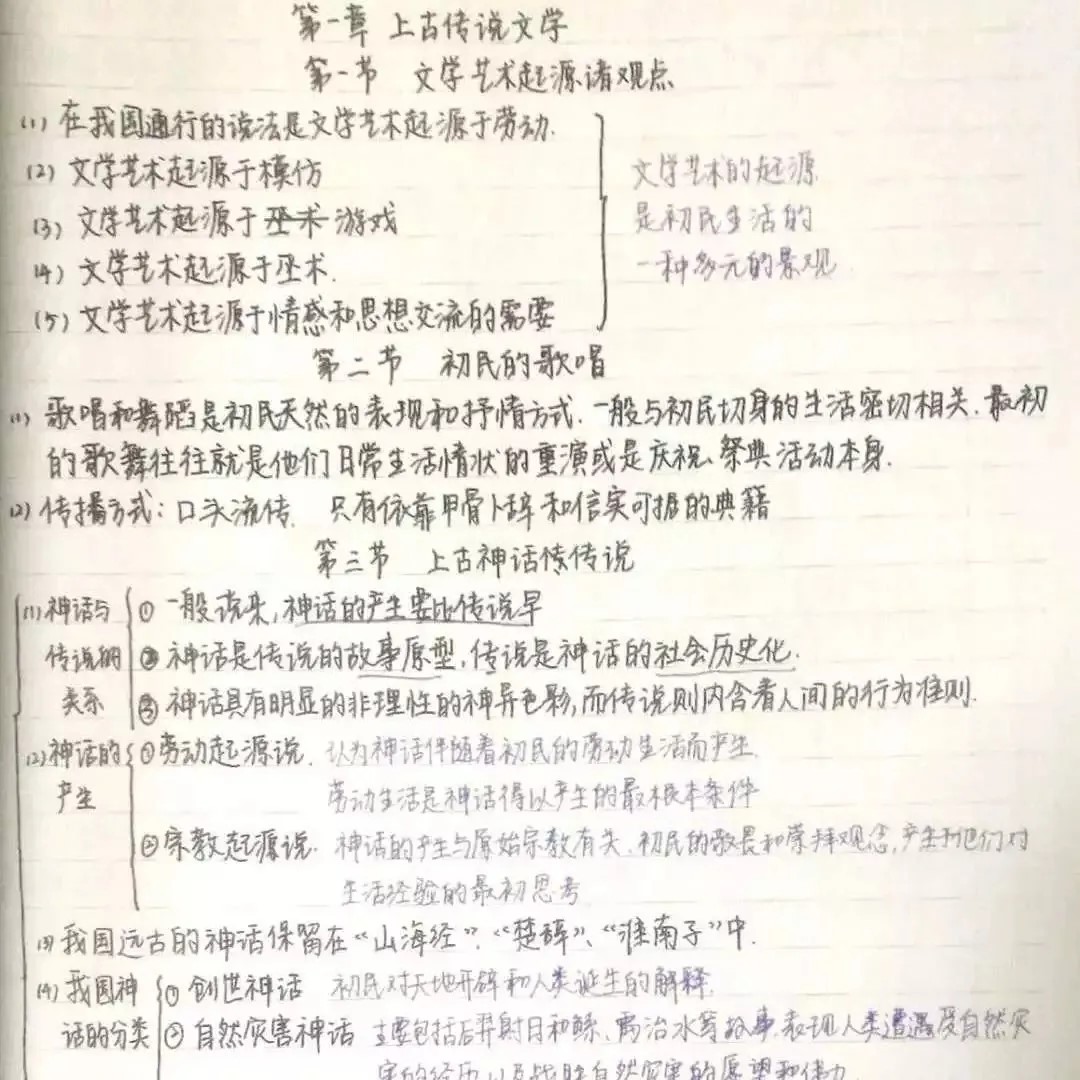 第一章 上古传说文学
第一节 文学艺术起源诸观点
(1) 在我国通行的说法是文学艺术起源于劳动.
(2) 文学艺术起源于模仿
(3) 文学艺术起源于巫术 游戏
(4) 文学艺术起源于巫术.
(5) 文学艺术起源于情感和思想交流的需要
文学艺术的起源
是初民生活的
一种多元的景观
第二节 初民的歌唱
(1) 歌唱和舞蹈是初民天然的表现和抒情方式. 一般与初民切身的生活密切相关. 最初
的歌舞往往就是他们日常生活情状的重演或是庆祝、祭典活动本身.
(2) 传播方式: 口头流传. 只有依靠甲骨卜辞和信实可据的典籍
第三节 上古神话传说
(1) 神话与传说的关系
① 一般说来, 神话的产生要比传说早
② 神话是传说的故事原型, 传说是神话的社会历史化.
③ 神话具有明显的非理性的神异色彩, 而传说则内含着人间的行为准则.
(2) 神话的产生
① 劳动起源说. 认为神话伴随着初民的劳动生活而产生.
劳动生活是神话得以产生的最根本条件
② 宗教起源说. 神话的产生与原始宗教有关. 初民的敬畏和崇拜观念, 产生于他们对
生活经验的最初思考
(3) 我国远古的神话保留在“山海经”、“楚辞”、“淮南子”中.
(4) 我国神话的分类
① 创世神话 初民对天地开辟和人类诞生的解释.
② 自然灾害神话 主要包括后羿射日和鲧、禹治水等故事. 表现人类遭遇及自然灾
害的经历以及战胜自然灾害的愿望和伟力